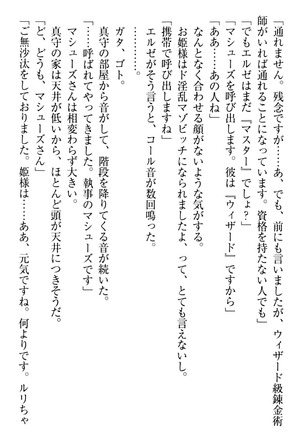 「通れません。残念ですが……あ、でも、前にも言いましたが、ウィザード級錬金術
師がいれば通れることになっています。資格を持たない人でも」
「でもエルゼはまだ『マスター』でしょ？」
「マシューズを呼び出します。彼は『ウィザード』ですから」
「ああ……あの人ね」
なんとなく合わせる顔がないような気がする。
お姫様はド淫乱マゾビッチになられましたよ、って、とても言えないし。
「携帯で呼び出しますね」
エルゼがそう言うと、コール音が数回鳴った。
ガタ、ゴト。
真守の部屋から音がして、階段を降りてくる音が続いた。
「……呼ばれてやってきました。執事のマシューズです」
マシューズさんは相変わらず大きい。
真守の家は天井が低いから、ほとんど頭が天井につきそうだ。
「ど、どうも、マシューズさん」
「ご無沙汰をしておりました。姫様は……ああ、元気ですね。何よりです。ルリちゃ